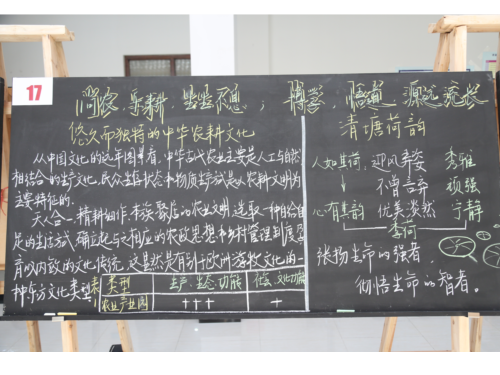 17
尚农，乐耕，生生不息； 博学，悟道，源远流长
悠久而独特的中华农耕文化
从中国文化的远年图景看，中华古代农业主要是人工与自然
相结合的生产文化，民众生活状态和物质生产试是以农耕文明为
主要特征的。
天人合一精耕细作，本族聚居的农业文明，选取一种自给自
足的生活试，确立起与之相应的农政思想和乡村管理制度，孕
育以内敛的文化传统，这显然具有别于欧洲游牧文化的一
种东方文化类型
类型 生产、生态功能 社会、文化功能
农业产业园 +++ +
清塘荷韵
人如其荷，迎风弄姿 秀雅
不曾言弃 顽强
心有其韵 优美淡然 宁静
季荷
张扬生命的强者，
彻悟生命的智者。